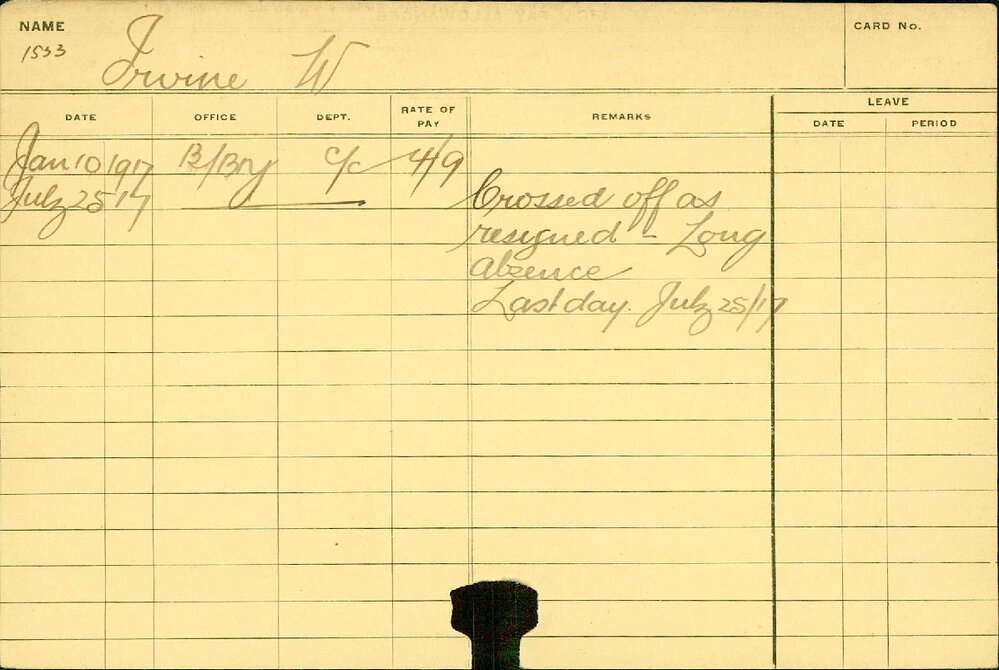 NAME
CARD No.
1533
Irvine W
DATE OFFICE DEPT. RATE OF PAY REMARKS LEAVE
DATE PERIOD
Jan 10 1917 B/Bty c/c 4/9
July 25 17
Crossed off as
resigned - Long
Absence
Last day. July 25/17